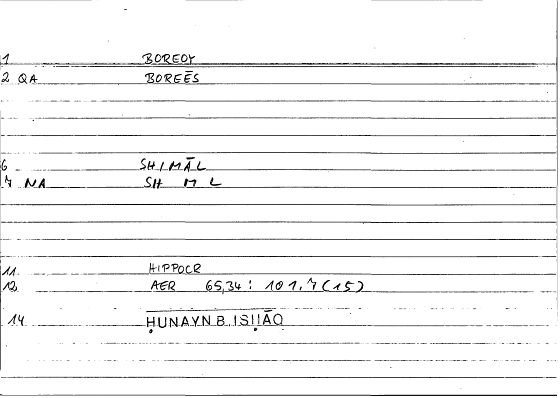 1 BOREOY
2 QA BOREĒS
6 SHIMĀL
7 NA SH M L
11 HIPPOCR
12 AER 65,34: 101.7(15)
14 ḤUNAYN B. ISḤĀQ